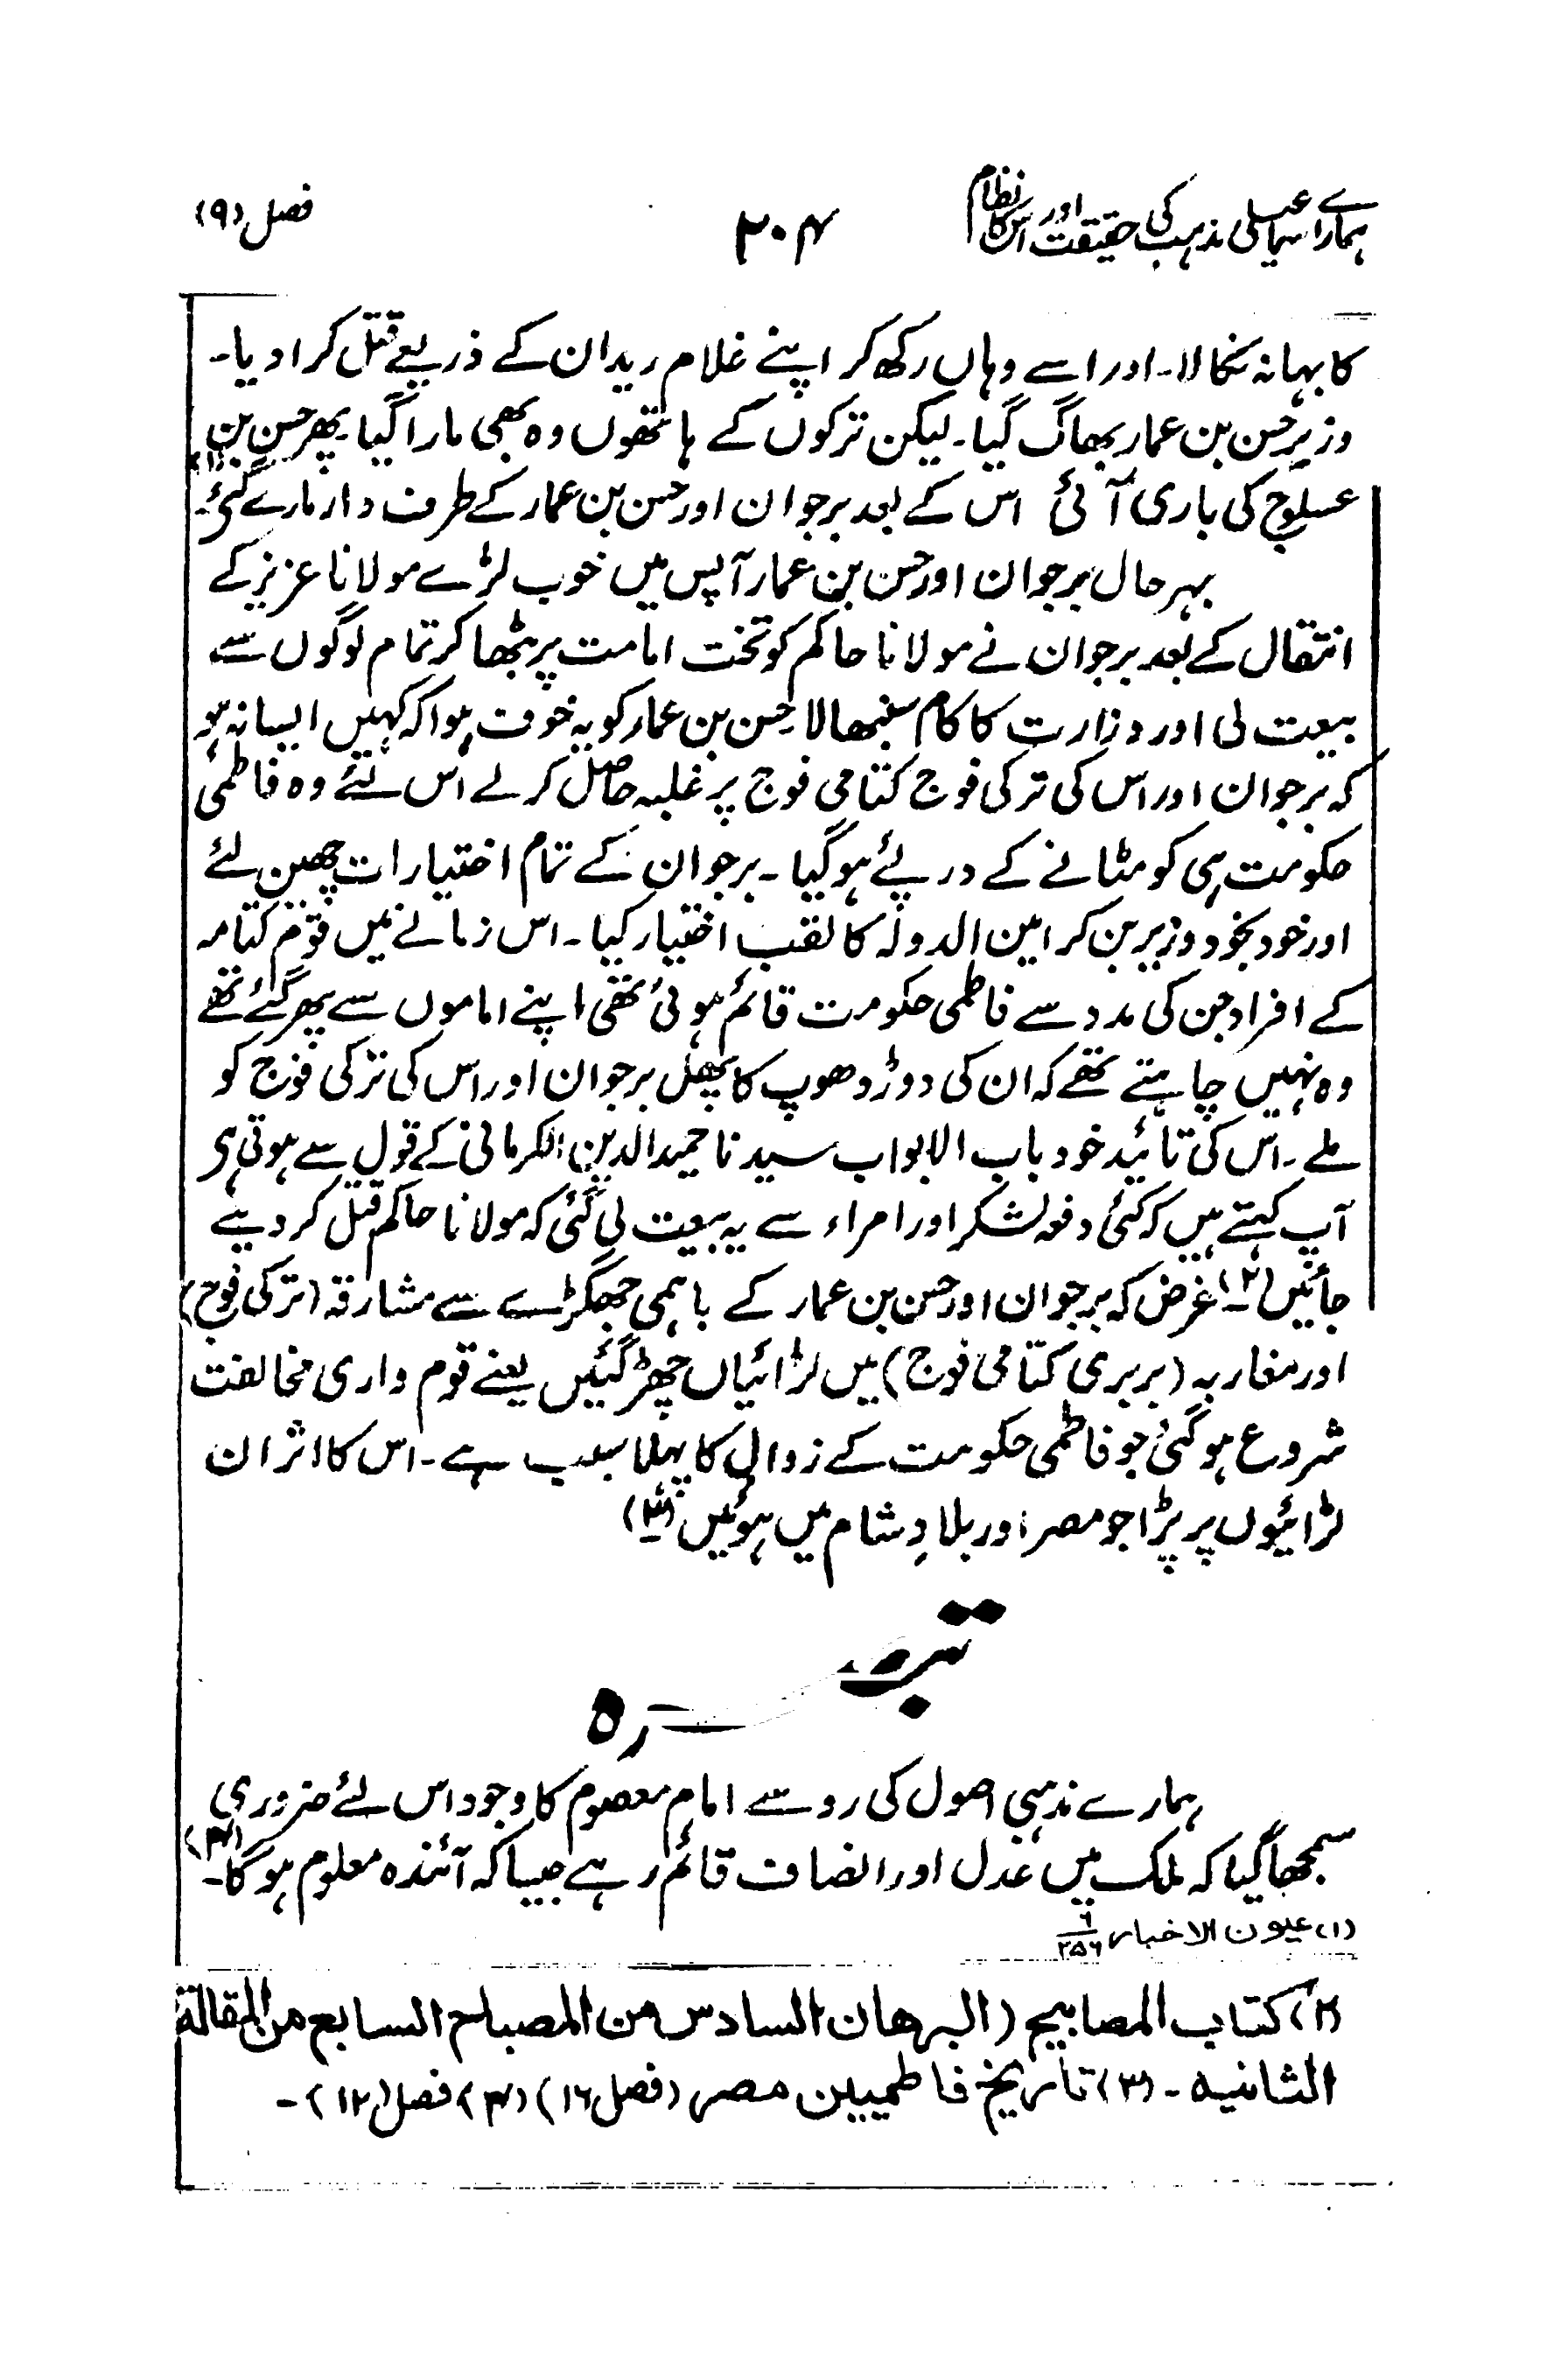 ہمارے اسماعیلی مذہب کی حقیقت اور اس کا نظام
۲۰۴
فصل (۹)
کا بہانہ نکالا۔ اور اسے وہاں رکھ کر اپنے غلام ریدان کے ذریعے قتل کرا دیا۔
وزیر حسن بن عمار بھاگ گیا۔ لیکن ترکوں کے ہاتھوں وہ بھی مارا گیا۔ پھر حسن بن
عسلوج کی باری آئی اس کے بعد برجوان اور حسن بن عمار کے طرف دار مارے گئے۔ (۱)
بہر حال برجوان اور حسن بن عمار آپس میں خوب لڑے مولانا عزیز کے
انتقال کے بعد برجوان نے مولانا حاکم کو تخت امامت پر بٹھا کر تمام لوگوں سے
بیعت لی اور وزارت کا کام سنبھالا۔ حسن بن عمار کو یہ خوف ہوا کہ کہیں ایسا نہ ہو
کہ برجوان اور اس کی ترکی فوج کتامی فوج پر غلبہ حاصل کر لے اس لئے وہ فاطمی
حکومت ہی کو مٹانے کے درپئے ہو گیا۔ برجوان کے تمام اختیارات چھین لئے
اور خود بخود وزیر بن کر امین الدولہ کا لقب اختیار کیا۔ اس زمانے میں قوم کتامہ
کے افراد جن کی مدد سے فاطمی حکومت قائم ہوئی تھی اپنے اماموں سے پھر گئے تھے
وہ نہیں چاہتے تھے کہ ان کی دوڑ دھوپ کا پھل برجوان اور اس کی ترکی فوج کو
ملے۔ اس کی تائید خود باب الابواب سیدنا حمید الدین الکرمانی کے قول سے ہوتی ہی
آپ کہتے ہیں کہ کئی دفعہ لشکر اور امراء سے یہ بیعت لی گئی کہ مولانا حاکم قتل کر دیے
جائیں (۲) غرض کہ برجوان اور حسن بن عمار کے باہمی جھگڑے سے مشارقہ (ترکی فوج)
اور مغاربہ (بربری کتامی فوج) میں لڑائیاں چھڑ گئیں یعنے قوم واری مخالفت
شروع ہو گئی جو فاطمی حکومت کے زوال کا پہلا سبب ہے۔ اس کا اثر ان
لڑائیوں پر پڑا جو مصر اور بلادِ شام میں ہوئیں (۳)
تبصرہ
ہمارے مذہبی اصول کی رو سے امام معصوم کا وجود اس لئے ضروری
سمجھا گیا کہ ملک میں عدل اور انصاف قائم رہے جیسا کہ آئندہ معلوم ہو گا۔ (۴)
(۱) عیون الاخبار ۶/۲۵۶
(۲) کتاب المصابیح (البرھان السادس من المصباح السابع من المقالة
الثانیہ۔ (۳) تاریخ فاطمیین مصر (فصل ۱۶) (۴) فصل (۱۲)۔